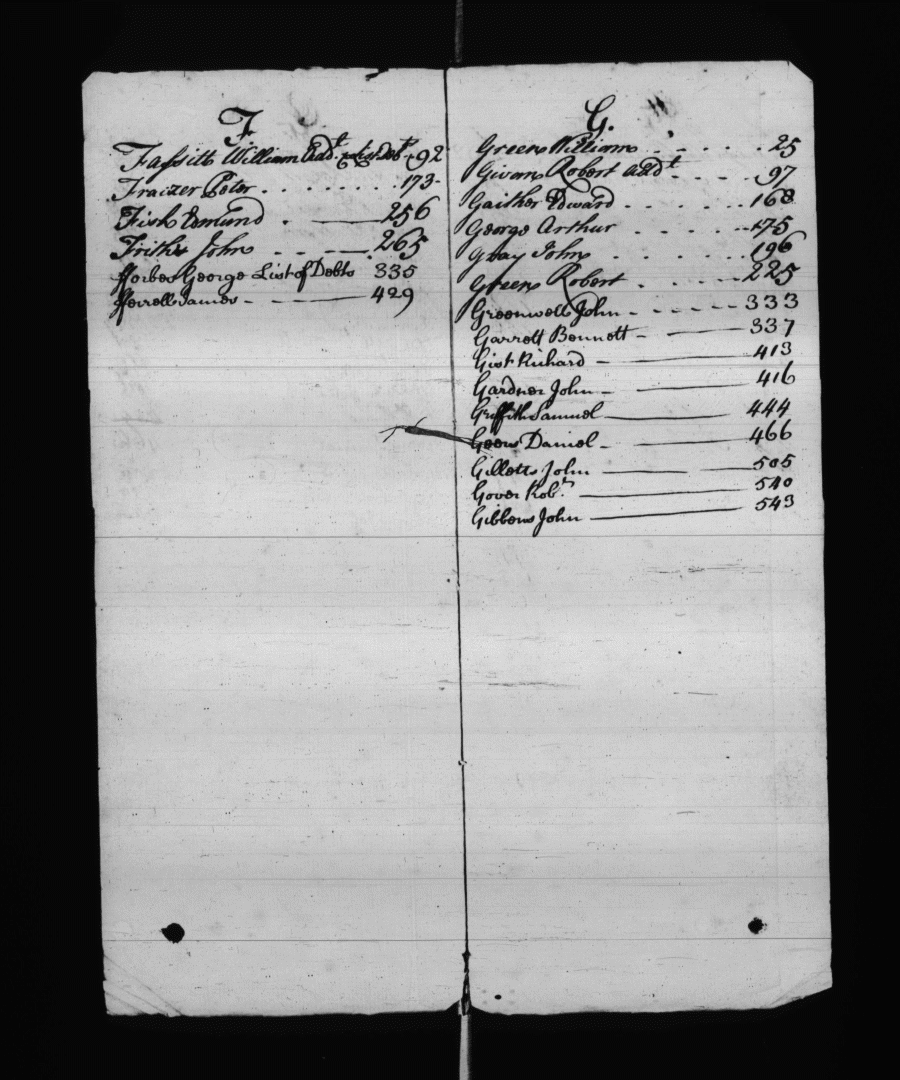 F.
Fassitt William Add.t & List Deb.t 92
Fraizer Peter 173
Fisk Edmund 256
Friths John 265
fforbes George List of Debts 335
fferrell James 429
G.
Green William 25
Givans Robert add.t 97
Gaither Edward 168
George Arthur 175
Gray John 196
Green Robert 225
Greenwell John 333
Garrett Bennett 337
Gist Richard 413
Gardner John 416
Griffith Samuel 444
Daniel 466
Gilletts John 505
Gover Rob.t 540
Gibbons John 543